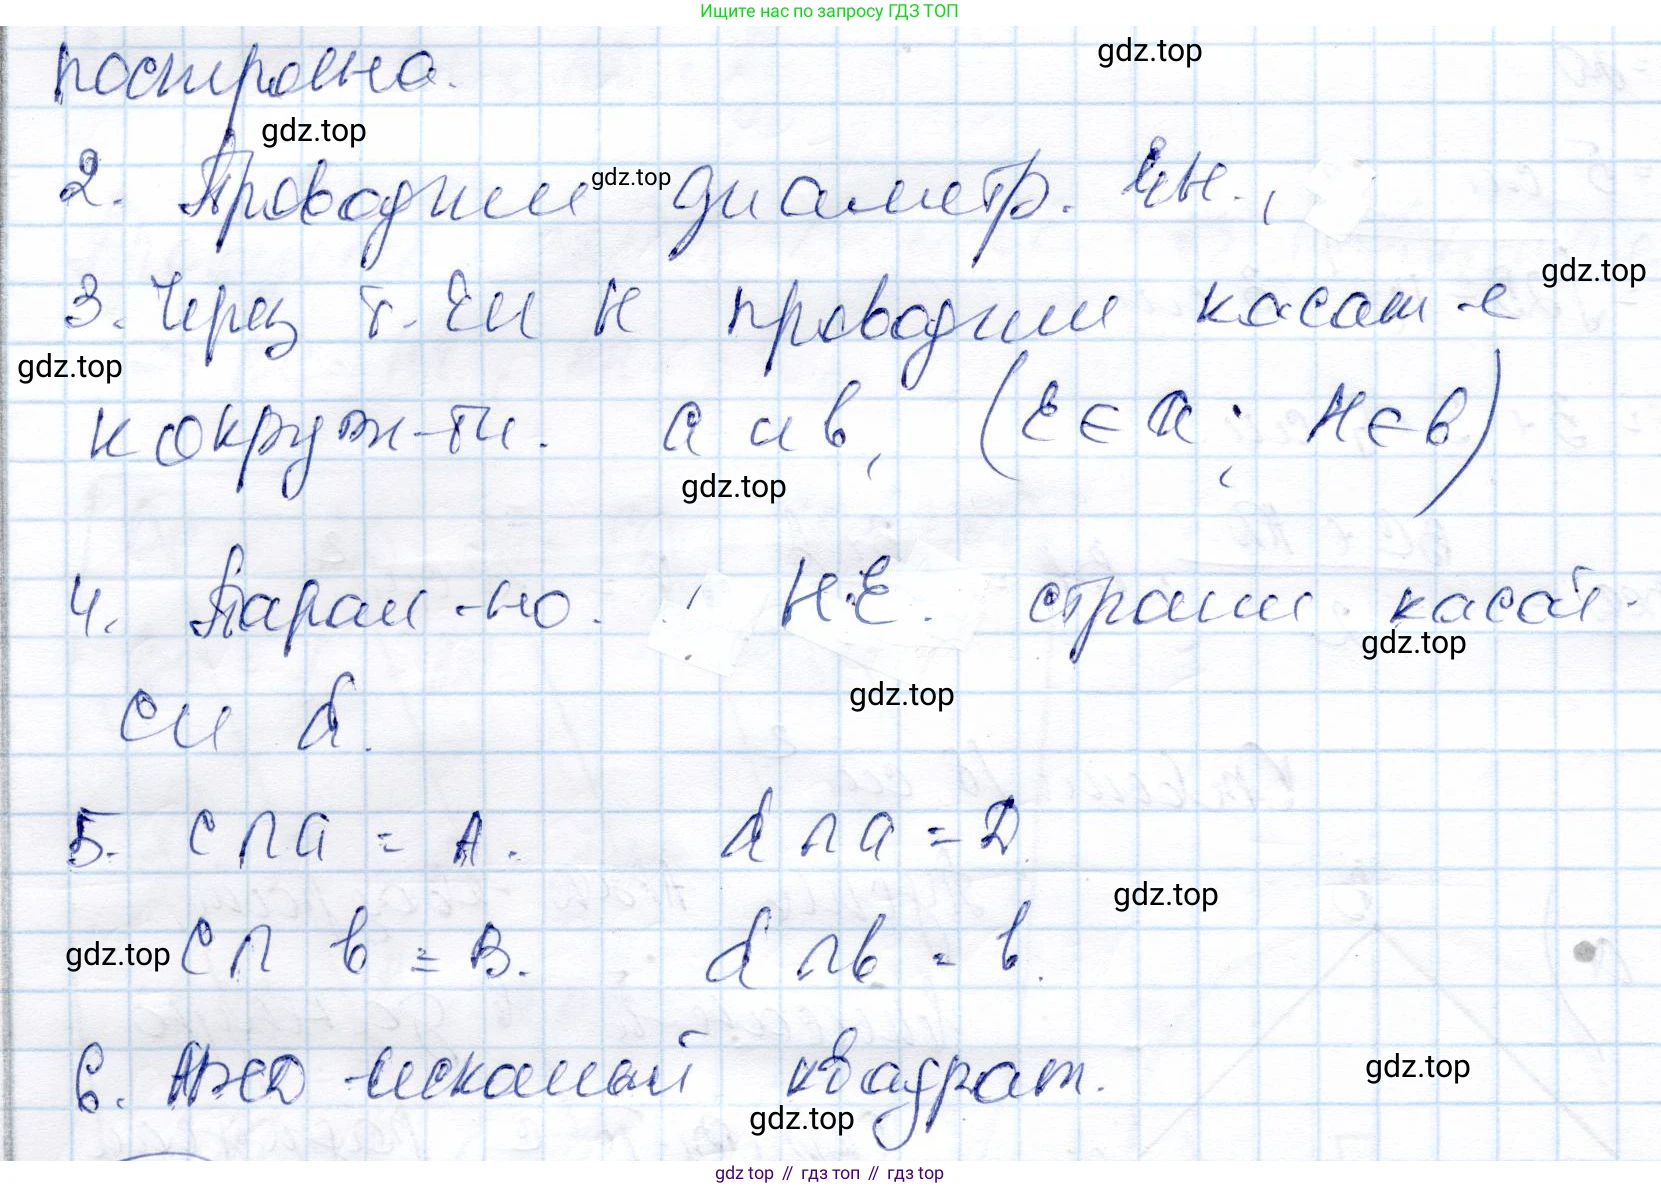 Ищите нас по запросу ГДЗ ТОП
построена.
gdz.top
gdz.top
2. Проводим диаметр. ЕН.,
gdz.top
3. Через т. Е и Н проводим касат-е
gdz.top
gdz.top
к окруж-ти. a и b, (E ∈ a; H ∈ b)
gdz.top
4. Парал-но. HE. строим касат-
gdz.top
c и d.
gdz.top
5. c ∩ a = A. d ∩ a = D.
gdz.top
c ∩ b = B. d ∩ b = b.
gdz.top
6. ABCD - искомый квадрат.
gdz.top
gdz.top
gdz top // гдз топ // gdz top